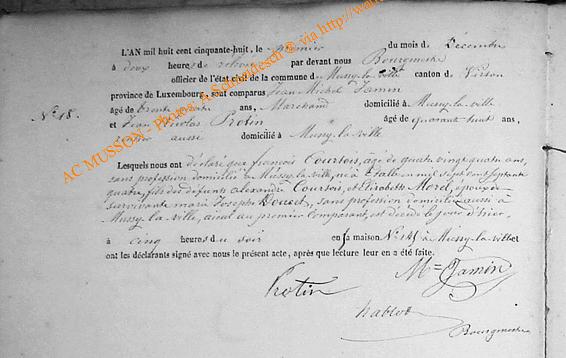 L'AN mil huit cent cinquante-huit, le premier du mois de Décembre
à deux heures de relevée par devant nous Bourgmestre
officier de l'état civil de la commune de Mussy-la-ville canton de Virton
province de Luxembourg, sont comparus Jean Michel Jamin
N° 18. âgé de trente ans, Marchand domicilié à Mussy-la-ville
et Jean Nicolas Protin âgé de quarante huit ans,
aussi domicilié à Mussy-la-ville
Lesquels nous ont déclaré que françois Courtois, âgé de quatre vingt quatre ans,
sans profession domicilié à Mussy-la-ville, né à Ethe en mil sept cent septante
quatre, fils des défunts alexandre Courtois, et Elisabeth Morel, époux de
survivante marie Josephe, sans profession domiciliée aussi à
Mussy-la-ville, au premier Comparant, est décédé le jour d'hier,
à cinq heures du soir en sa maison N° 145 à Mussy-la-ville et
ont les déclarants signé avec nous le présent acte, après que lecture leur en a été faite.
Protin M Jamin
Bourgmestre
AC MUSSON - Photos: A.
© via http://www